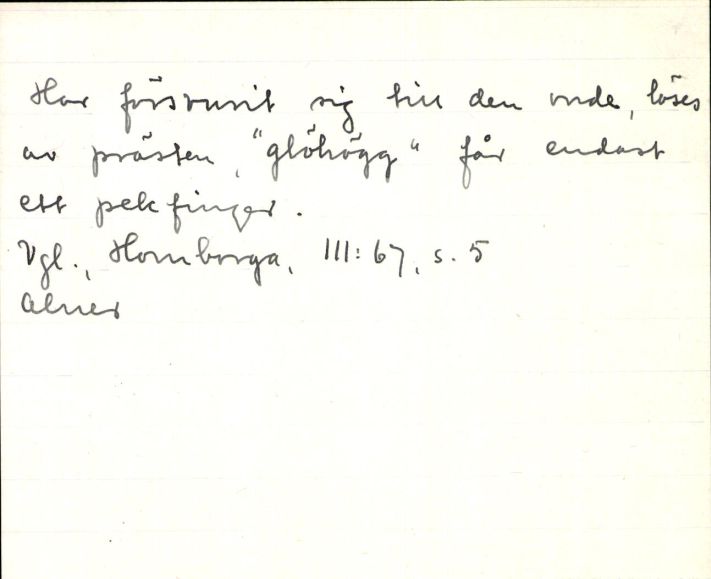 Har försvurit sig till den onde, löses
av prästen, "glöhögg" får endast
ett pekfinger.
Vgl., Hornborga, III: 67, s. 5
Alner